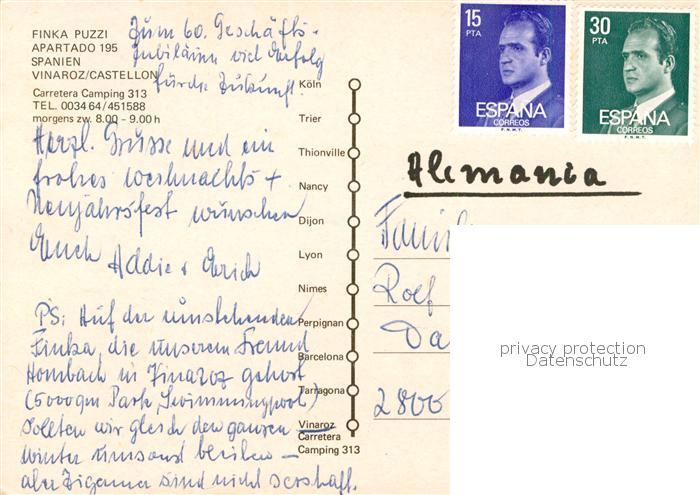 FINKA PUZZI
APARTADO 195
SPANIEN
VINAROZ/CASTELLON
Carretera Camping 313
TEL. 0034 64/451588
morgens zw. 8.00 - 9.00 h
Zum 60. Geschäfts-
Jubiläum viel Erfolg
für die Zukunft!
Herzl. Grüsse und ein
frohes Weihnachts +
Neujahrsfest wünschen
Euch Addie + Erich
PS: Auf der umstehenden
Finka, die unserem Freund
Hombach in Vinaroz gehört
(5000qm Park, Swimmingpool)
sollten wir gleich den ganzen
Winter umsonst bleiben –
aber Zigeuner sind nicht sesshaft.
Köln
Trier
Thionville
Nancy
Dijon
Lyon
Nimes
Perpignan
Barcelona
Tarragona
Vinaroz
Carretera
Camping 313
15
PTA
ESPAÑA
CORREOS
F.N.M.T.
30
PTA
ESPAÑA
CORREOS
F.N.M.T.
Alemania
Rolf
Da
2800
privacy protection
Datenschutz